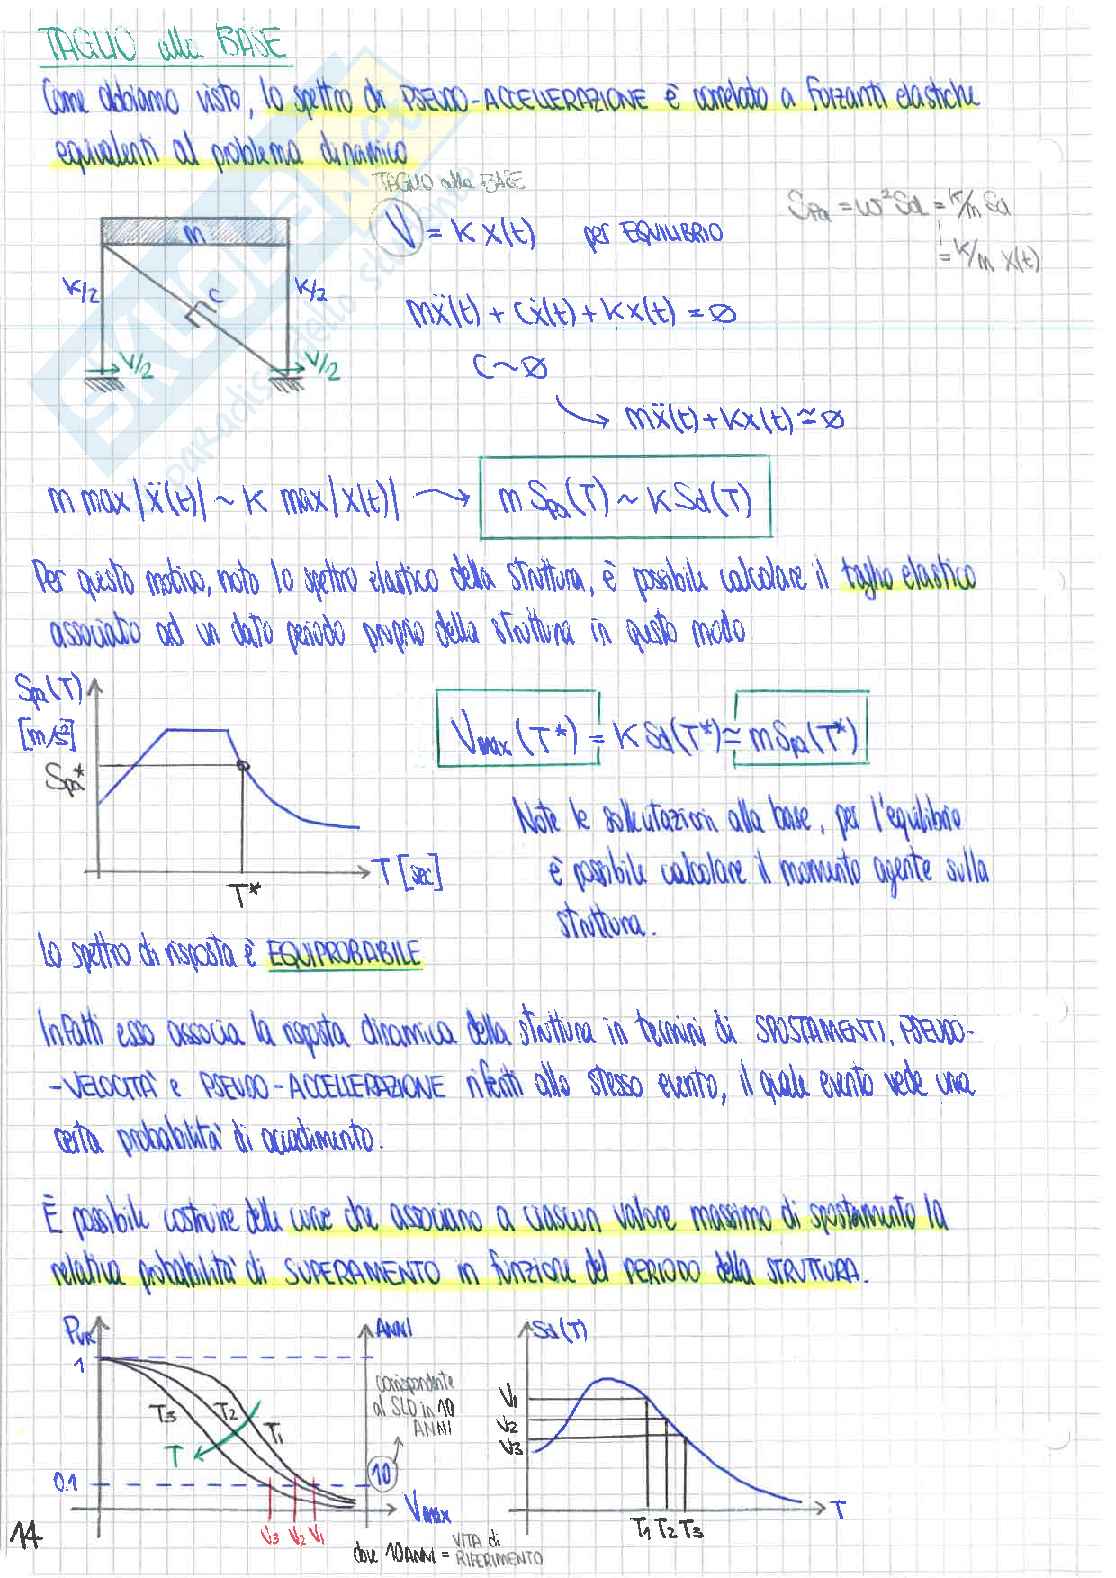 TAGLIO alla BASE
Come abbiamo visto, lo spettro di PSEUDO-ACCELLERAZIONE è correlato a forzanti elastiche
equivalenti al problema dinamico
TAGLIO alla BASE
V = K x(t) per EQUILIBRIO
Spa = ω²Sd = K/m Sd
= K/m x(t)
m
K/2
C
K/2
V/2
V/2
mẍ(t) + cẋ(t) + Kx(t) = ∅
C ~ ∅
mẍ(t) + Kx(t) ≃ ∅
m max |ẍ(t)| ~ K max |x(t)| → m Spa(T) ~ K Sd(T)
Per questo motivo, noto lo spettro elastico della struttura, è possibile calcolare il taglio elastico
associato ad un dato periodo proprio della struttura in questo modo
Spa(T)
[m/s²]
Spa*
T*
T [sec]
Vmax (T*) = K Sd(T*) ≃ m Spa(T*)
Note le sollecitazioni alla base, per l'equilibrio
è possibile calcolare il momento agente sulla
struttura.
Lo spettro di risposta è EQUIPROBABILE
Infatti esso associa la risposta dinamica della struttura in termini di SPOSTAMENTI, PSEUDO-
-VELOCITA' e PSEUDO-ACCELLERAZIONE riferiti allo stesso evento, il quale evento vede una
certa probabilita' di accadimento.
È possibile costruire delle curve che associano a ciascun valore massimo di spostamento la
relativa probabilita' di SUPERAMENTO in funzione del PERIODO della STRUTTURA.
PVR
1
0.1
T3
T2
T1
T
V3
V2
V1
Vmax
ANNI
corrispondente
al SLD in 10
ANNI
10
dove 10 ANNI = VITA di
RIFERIMENTO
Sd(T)
V1
V2
V3
T1
T2
T3
T
14
SKUOLA.net
paradiso dello studente